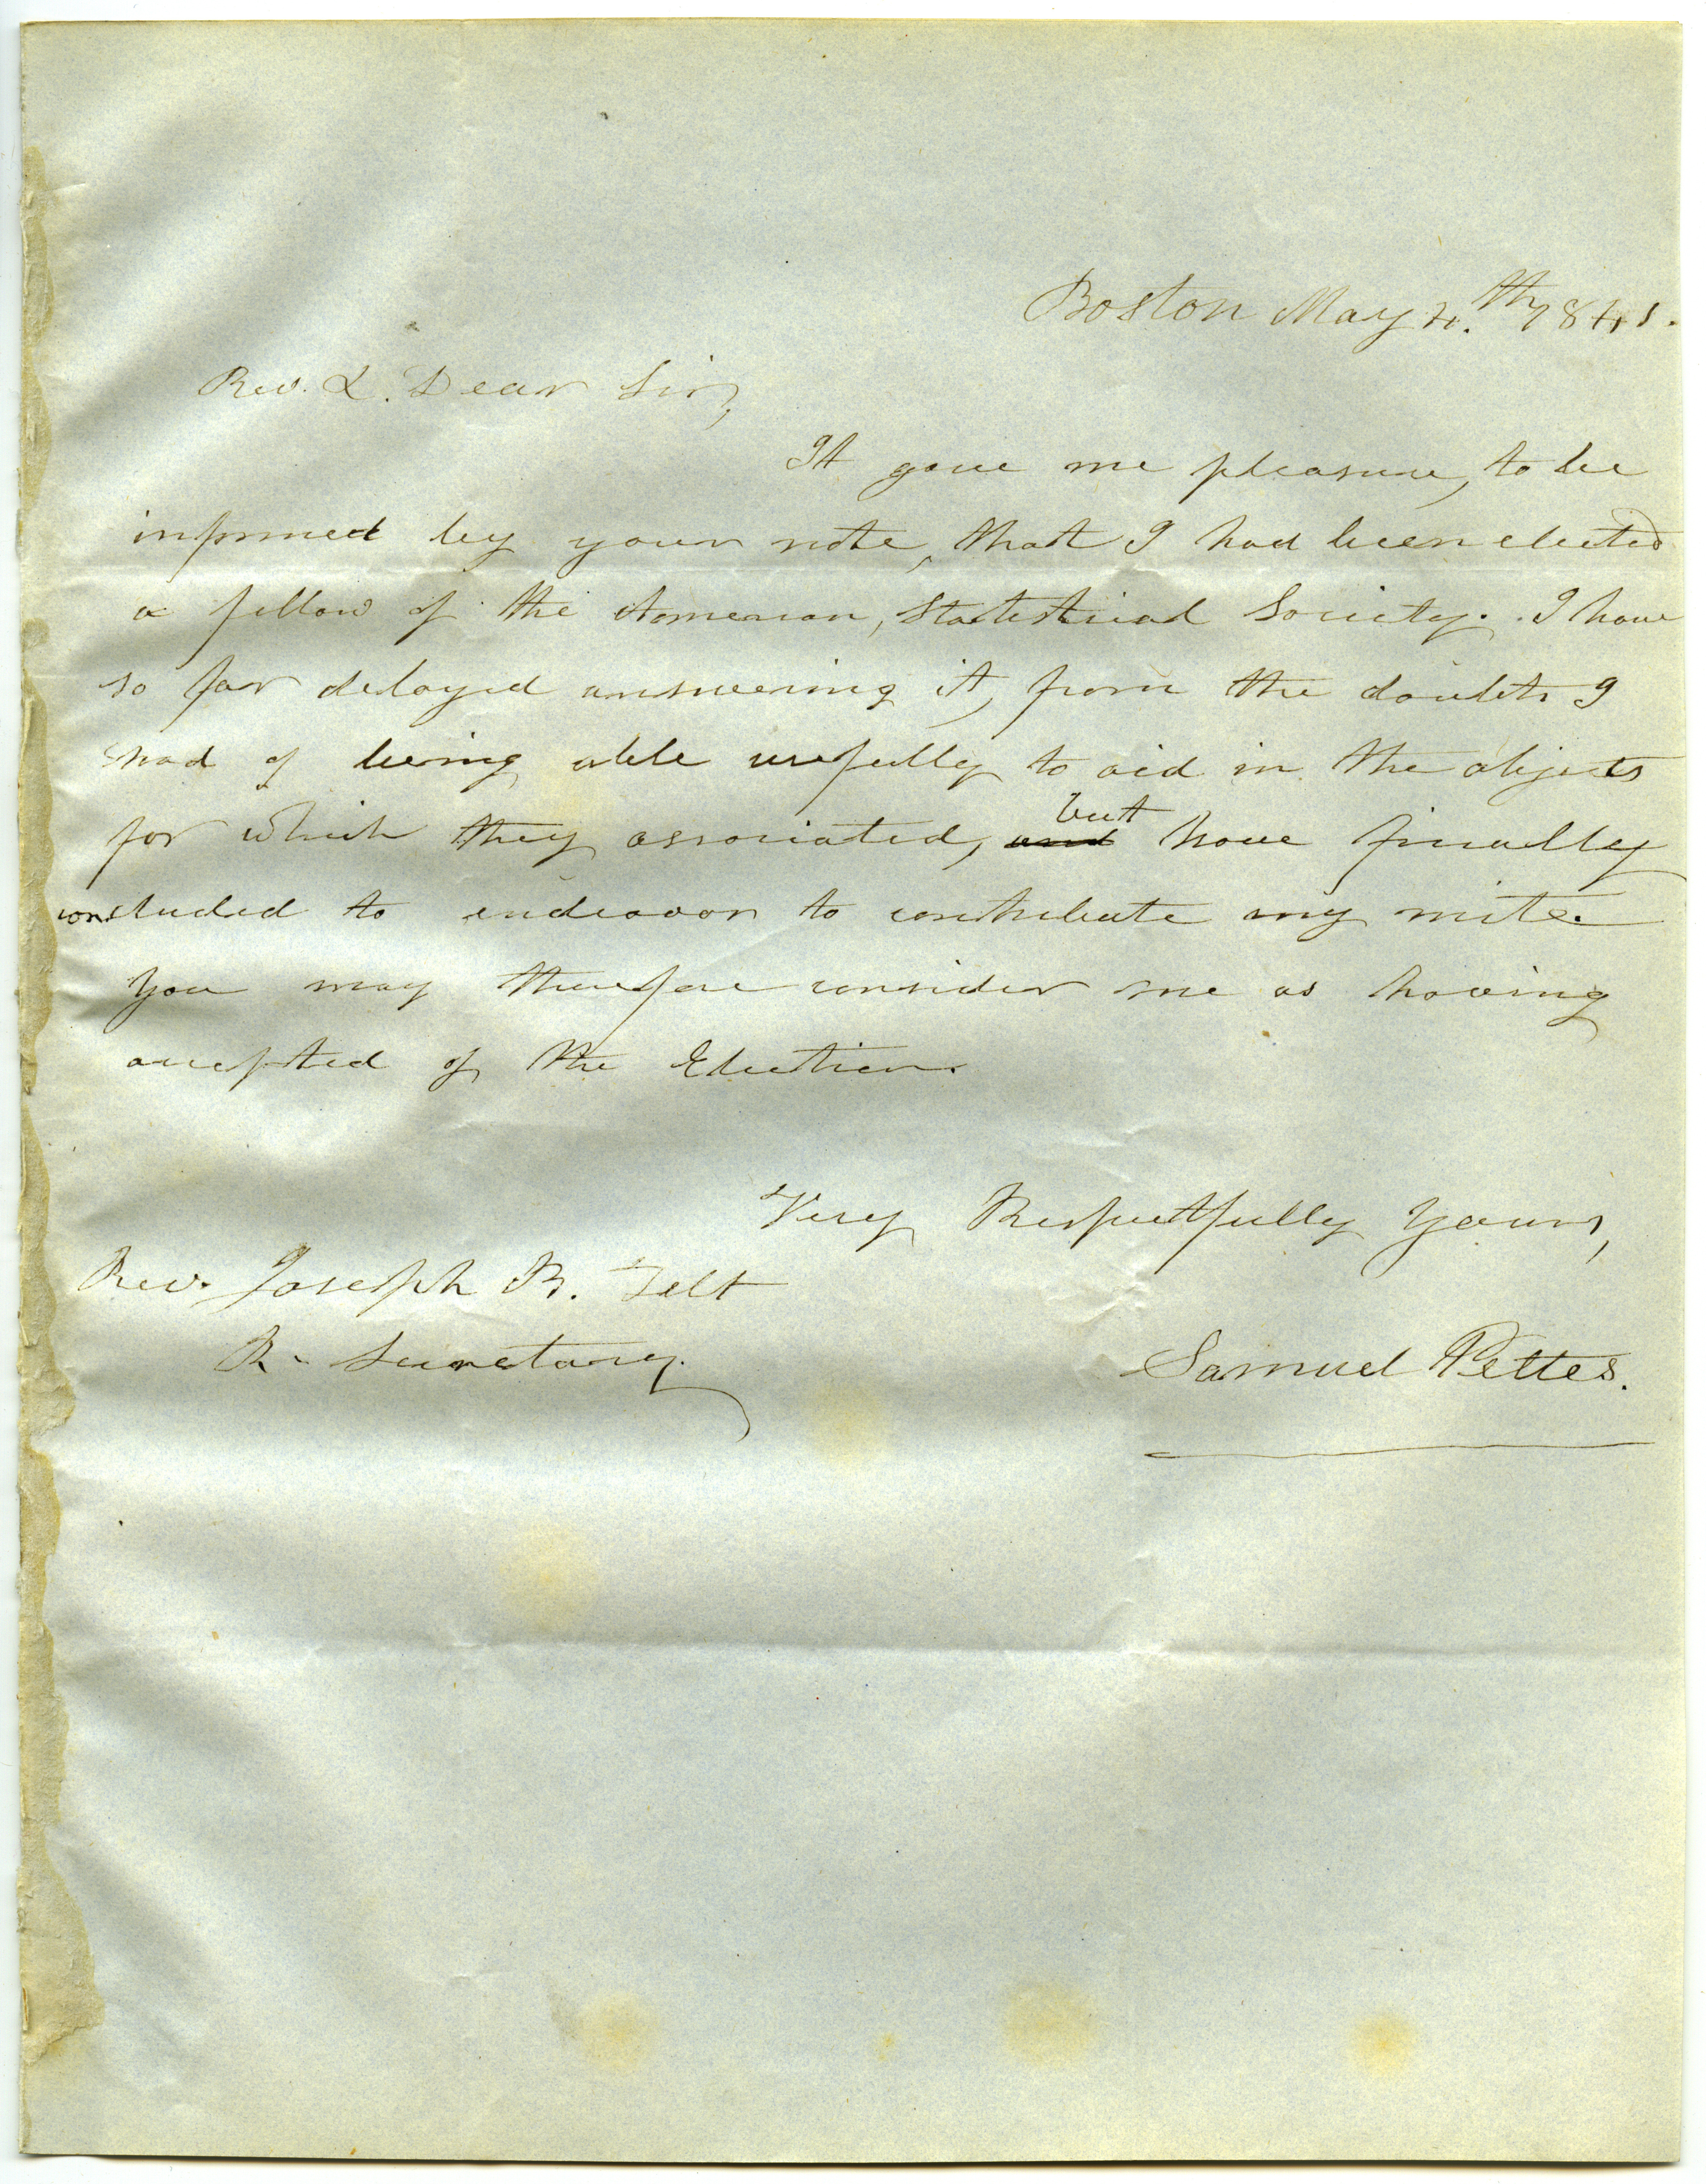 Boston May 4.th 1841.
Rev. & Dear Sir,
It gave me pleasure, to be
informed by your note, that I had been elected
a fellow of the American, Statistical Society. I have
so far delayed answering it, from the doubts I
had of being able usefully to aid in the objects
for which they associated, and but have finally
concluded to endeavor to contribute my mite.
You may therefore consider me as having
accepted of the Election.
Very Respectfully Yours,
Rev. Joseph B. Felt
R. Secretary
Samuel Pettes.